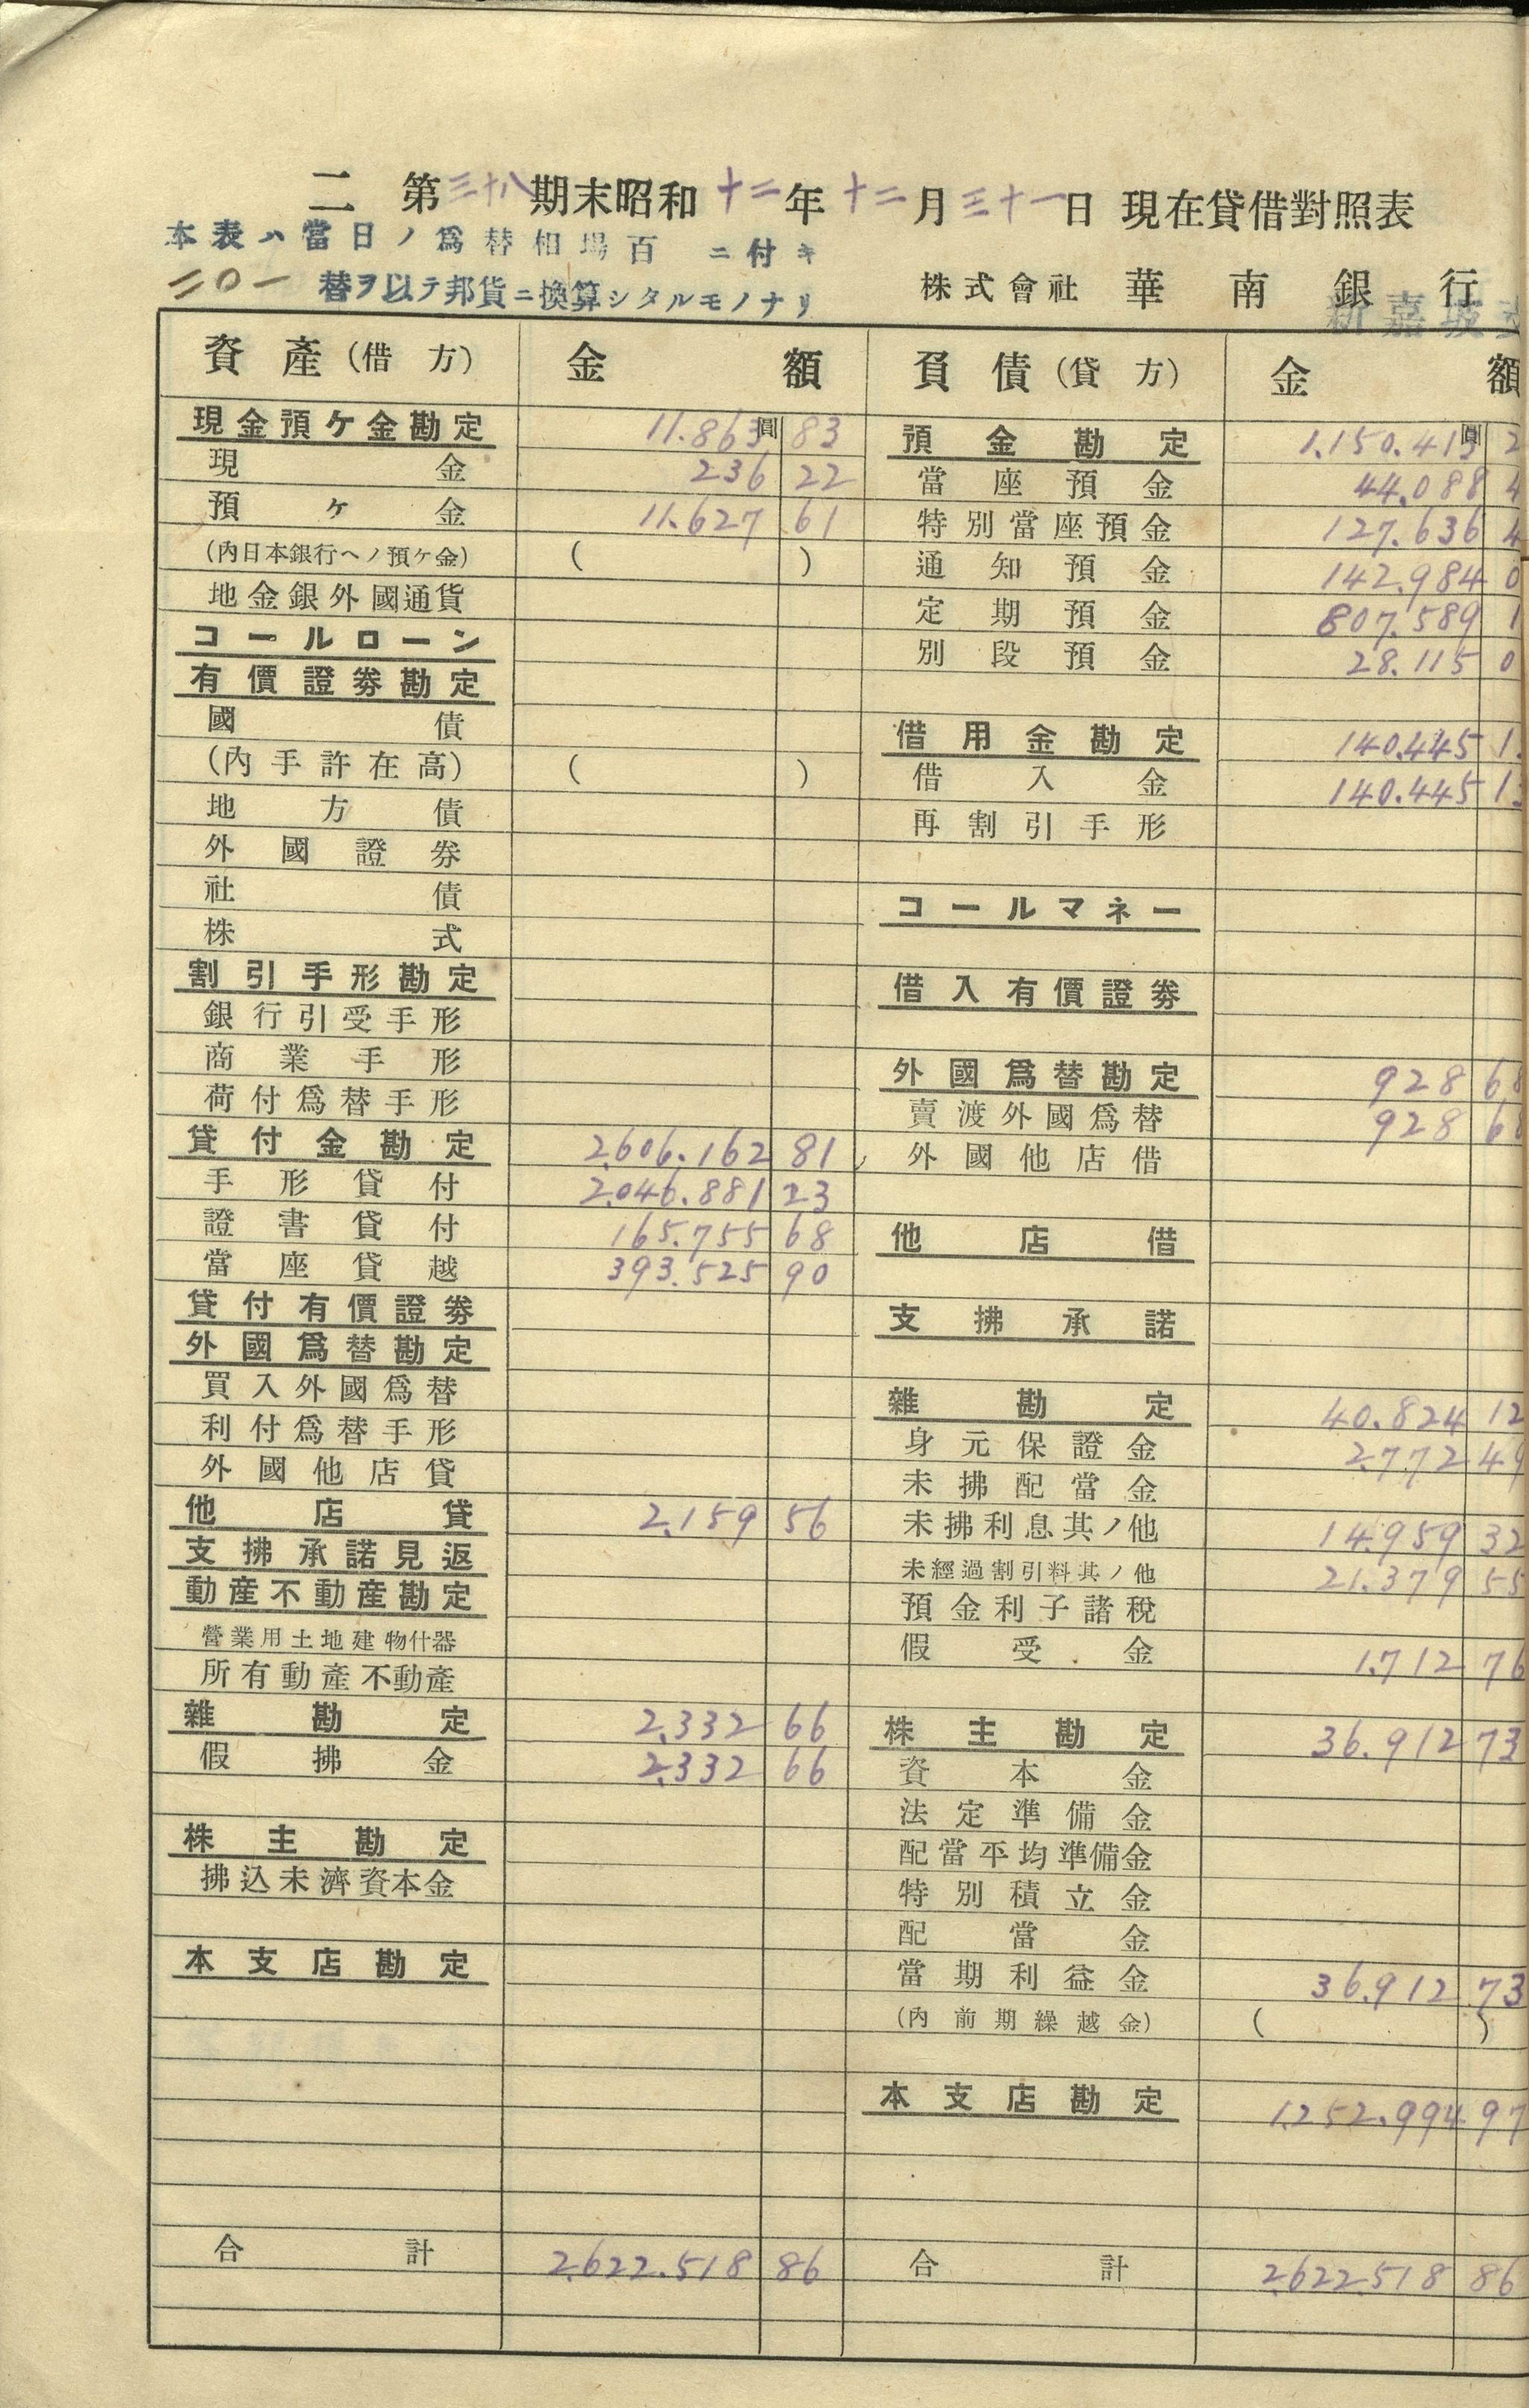 二 第三十八期末昭和十二年十二月三十一日 現在貸借對照表
本表ハ當日ノ爲替相場百 ニ付キ
二〇一 替ヲ以テ邦貨ニ換算シタルモノナリ
株式會社 華南銀行
新嘉坡支
資產(借方) 金額 負債(貸方) 金額
現金預ケ金勘定 11.863圓 83
現金 236 22
預ケ金 11.627 61
(內日本銀行ヘノ預ケ金) ( )
地金銀外國通貨
コールローン
有價證劵勘定
國債
(內手許在高) ( )
地方債
外國證券
社債
株式
割引手形勘定
銀行引受手形
商業手形
荷付爲替手形
貸付金勘定 2.606.162 81
手形貸付 2.046.881 23
證書貸付 165.755 68
當座貸越 393.525 90
貸付有價證劵
外國爲替勘定
買入外國爲替
利付爲替手形
外國他店貸
他店貸 2.159 56
支拂承諾見返
動產不動產勘定
營業用土地建物什器
所有動產不動產
雜勘定 2.332 66
假拂金 2.332 66
株主勘定
拂込未濟資本金
本支店勘定
合計 2.622.518 86
預金勘定 1.150.413圓 2
當座預金 44.088 4
特別當座預金 127.636 4
通知預金 142.984 0
定期預金 807.589 1
別段預金 28.115 0
借用金勘定 140.445 1
借入金 140.445 13
再割引手形
コールマネー
借入有價證劵
外國爲替勘定 928 68
賣渡外國爲替 928 68
外國他店借
他店借
支拂承諾
雜勘定 40.824 12
身元保證金 2.772 49
未拂配當金
未拂利息其ノ他 14.959 32
未經過割引料其ノ他 21.379 55
預金利子諸稅
假受金 1.712 76
株主勘定 36.912 73
資本金
法定準備金
配當平均準備金
特別積立金
配當金
當期利益金 36.912 73
(內前期繰越金) ( )
本支店勘定 1.252.994 97
合計 2.622.518 86